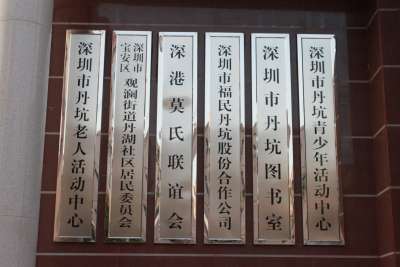 深圳市丹坑老人活动中心
深圳市
宝安区
观澜街道丹湖社区居民委员会
深港莫氏联谊会
深圳市福民丹坑股份合作公司
深圳市丹坑图书室
深圳市丹坑青少年活动中心